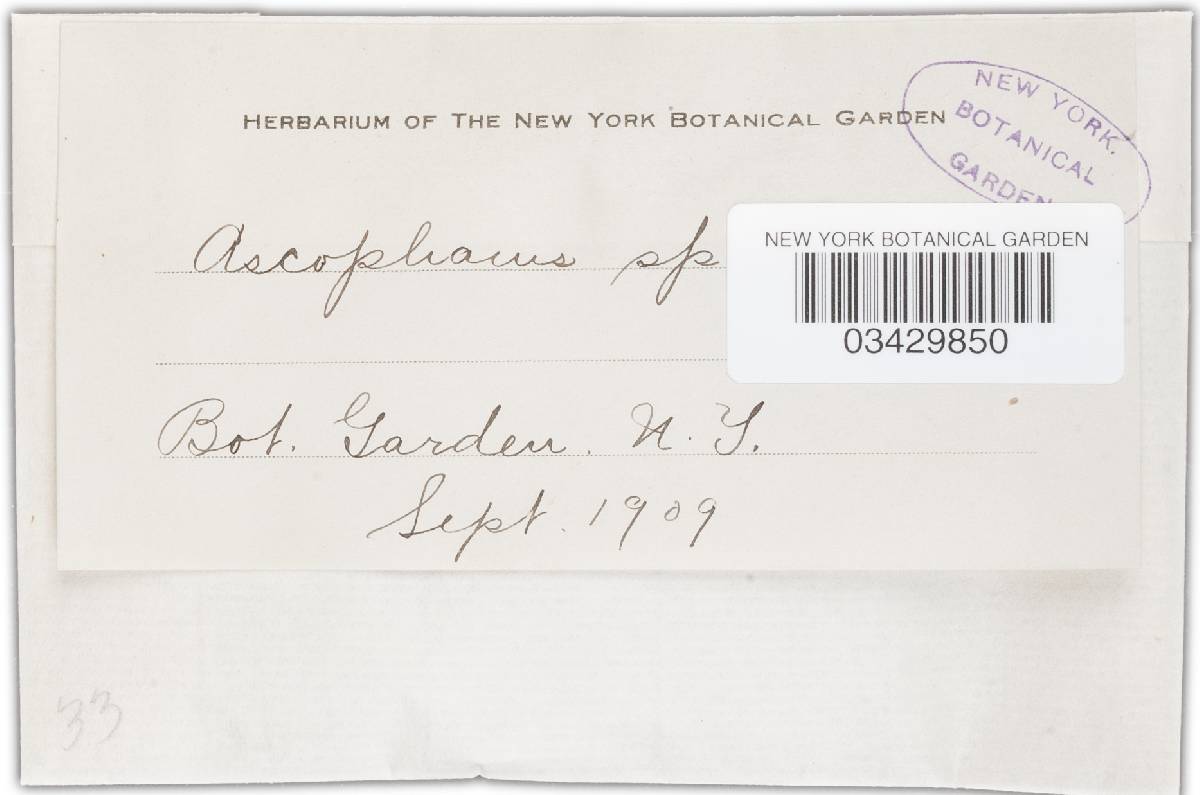 HERBARIUM OF THE NEW YORK BOTANICAL GARDEN
NEW YORK.
BOTANICAL
GARDEN
Ascophanus sp
NEW YORK BOTANICAL GARDEN
03429850
Bot. Garden. N. Y.
Sept. 1909
33